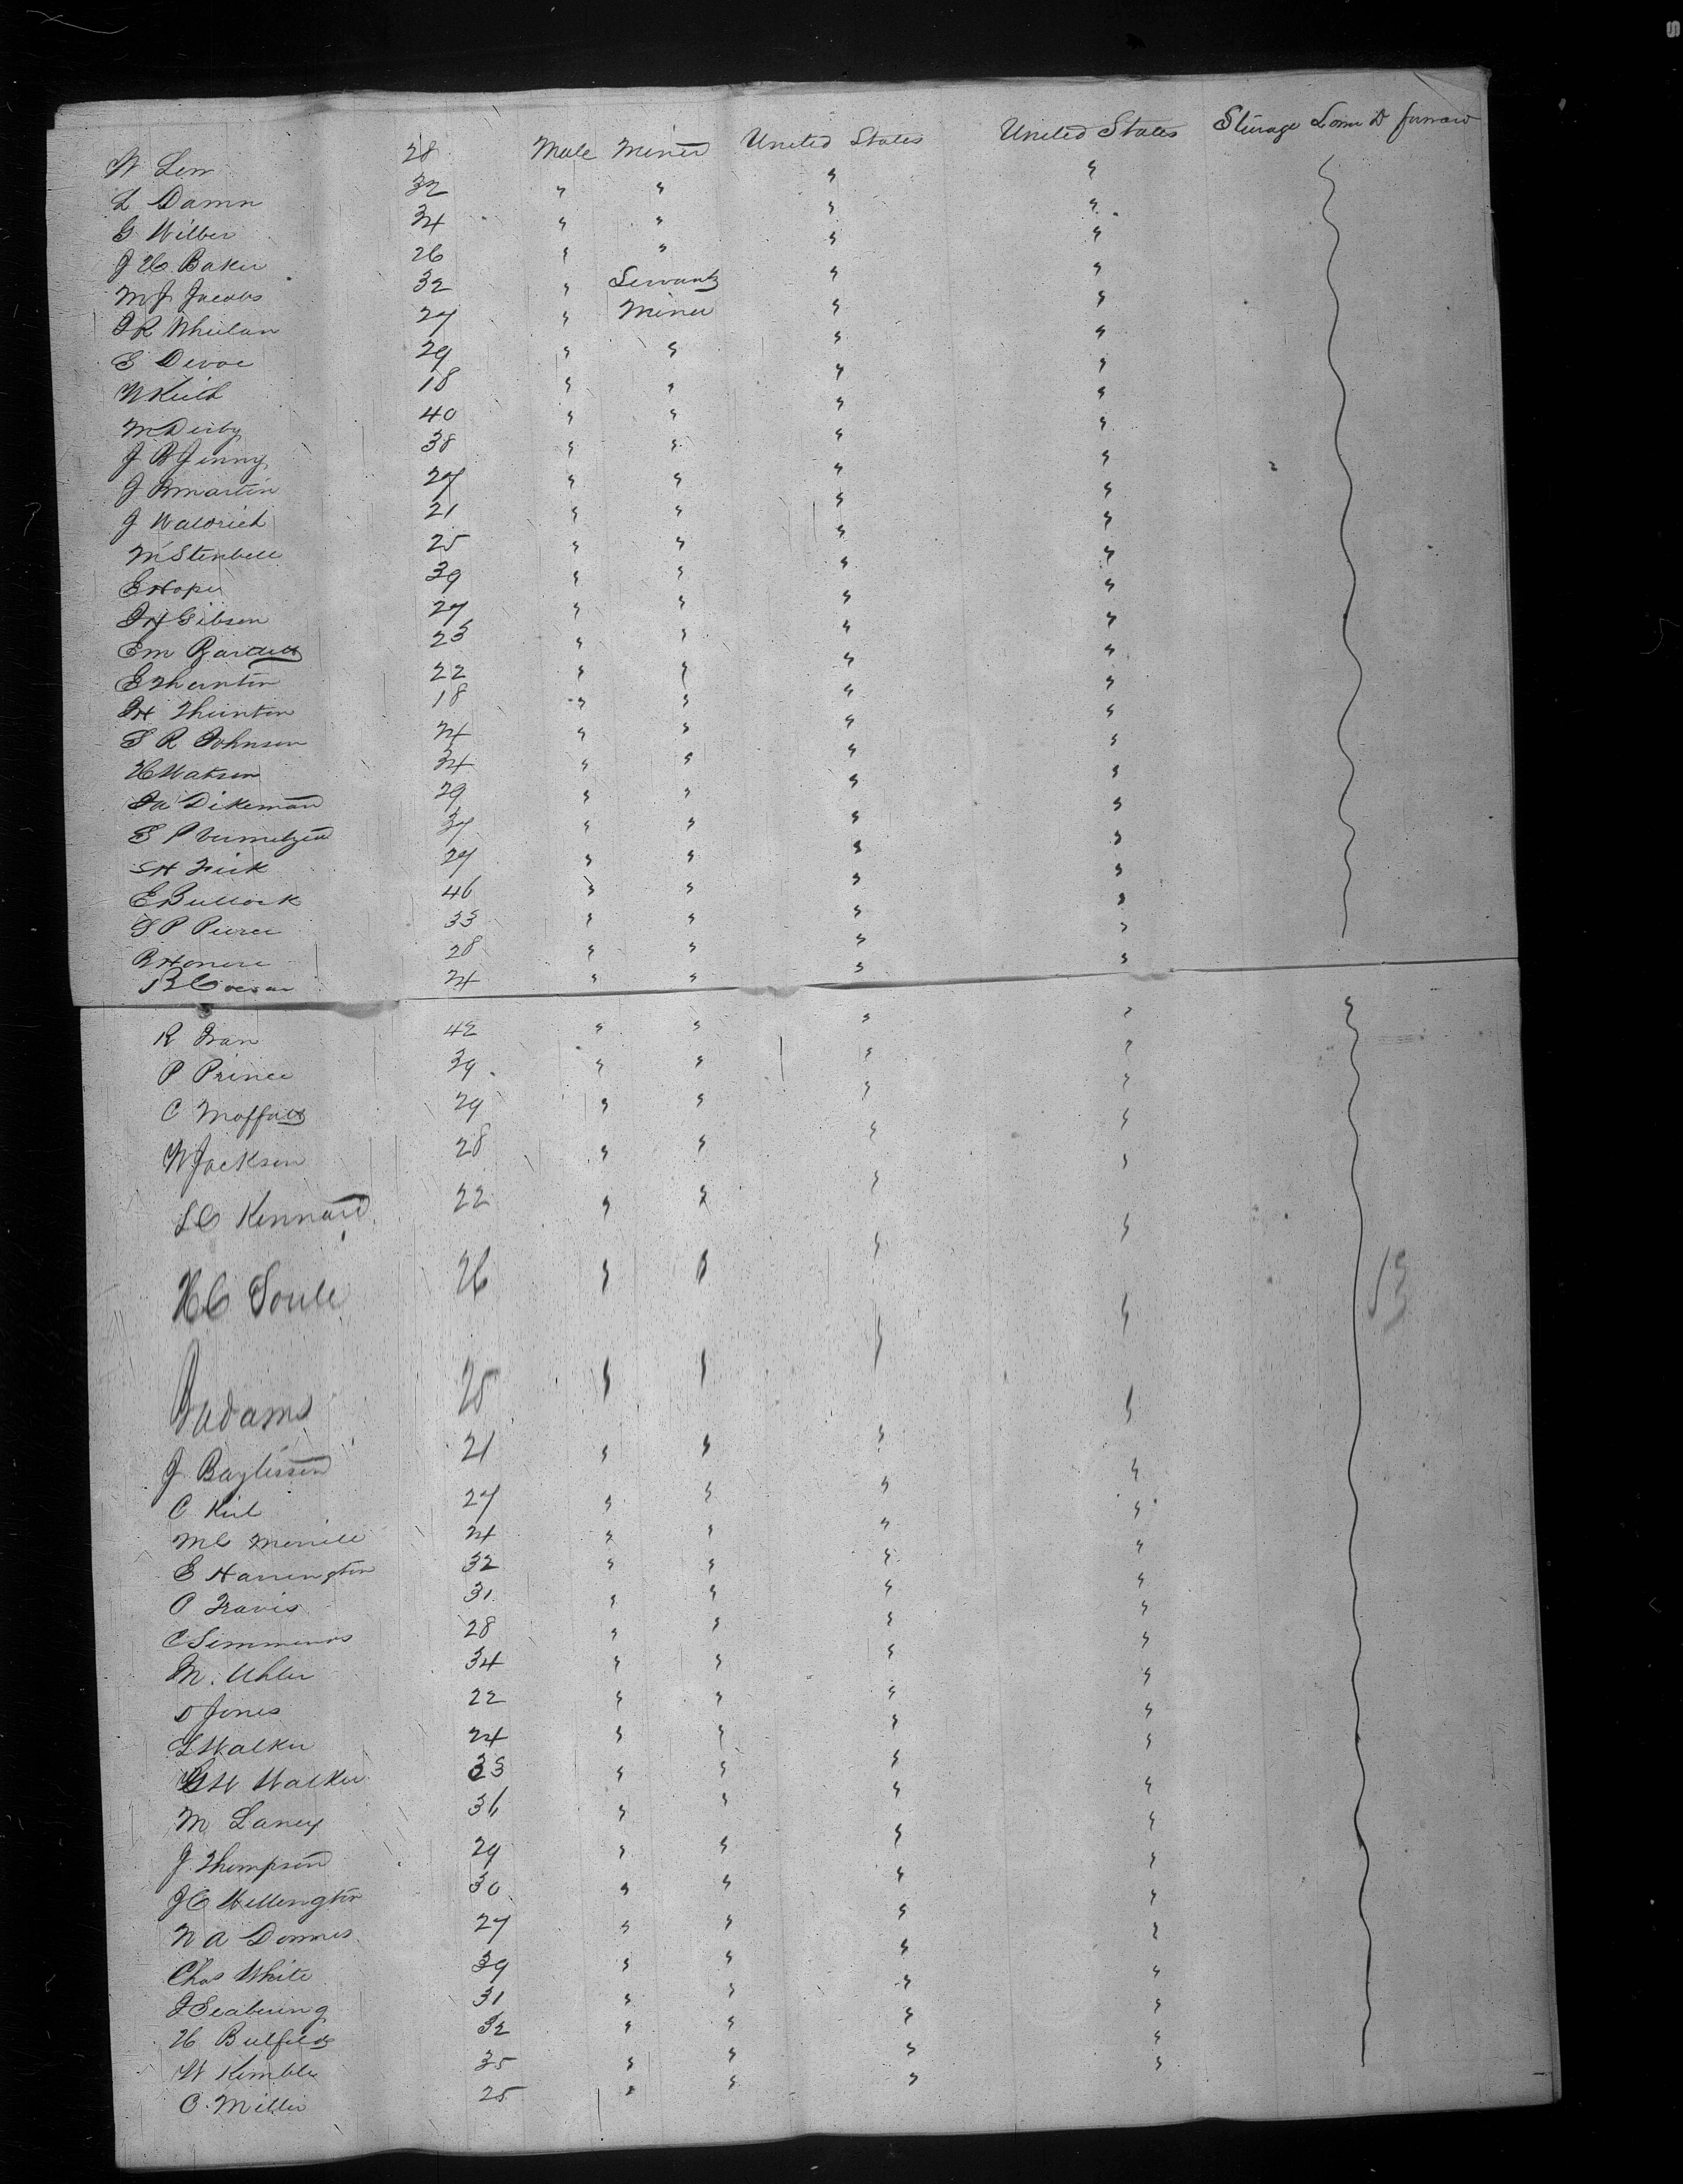 W Lem 28 Male Miner United States United States Sterage Lower D forward
L Damn 32 " " " "
G Wilber 34 " " " "
J H Baker 26 " " " "
M J Jacobs 32 " Servant " "
J R Whelan 27 " Miner " "
E Devoe 29 " " " "
W Keith 18 " " " "
M Derby 40 " " " "
J B Jenny 38 " " " "
J B Martin 27 " " " "
J Waldrich 21 " " " "
M Stenbell 25 " " " "
E Hoper 39 " " " "
J H Gibson 27 " " " "
E M Bartlett 23 " " " "
E Thornton 22 " " " "
J H Thornton 18 " " " "
S R Johnson 24 " " " "
H Watson 34 " " " "
J A Dikeman 29 " " " "
E P 37 " " " "
S H Fisk 27 " " " "
E Bullock 46 " " " "
S P Pierce 33 " " " "
B Honore 28 " " " "
B 24 " " " "
R Fran 42 " " " "
P Prince 39 " " " "
C Moffatt 29 " " " "
W Jackson 28 " " " "
S C Kennard 22 " " " "
H C Soule 26 " " " "
13
J Adams 25 " " " "
J 21 " " " "
C Kiel 27 " " " "
M C Merrill 24 " " " "
E Harrington 32 " " " "
O Travis 31 " " " "
C Simmons 28 " " " "
M. Uhler 34 " " " "
D Jones 22 " " " "
L Walker 24 " " " "
G W Walker 33 " " " "
M Laney 36 " " " "
J. Thompson 29 " " " "
J C Wellington 30 " " " "
W A Dommes 27 " " " "
Chas White 39 " " " "
J Seabering 31 " " " "
H Bulfield 32 " " " "
W Kimble 35 " " " "
C. Miller 25 " " " "